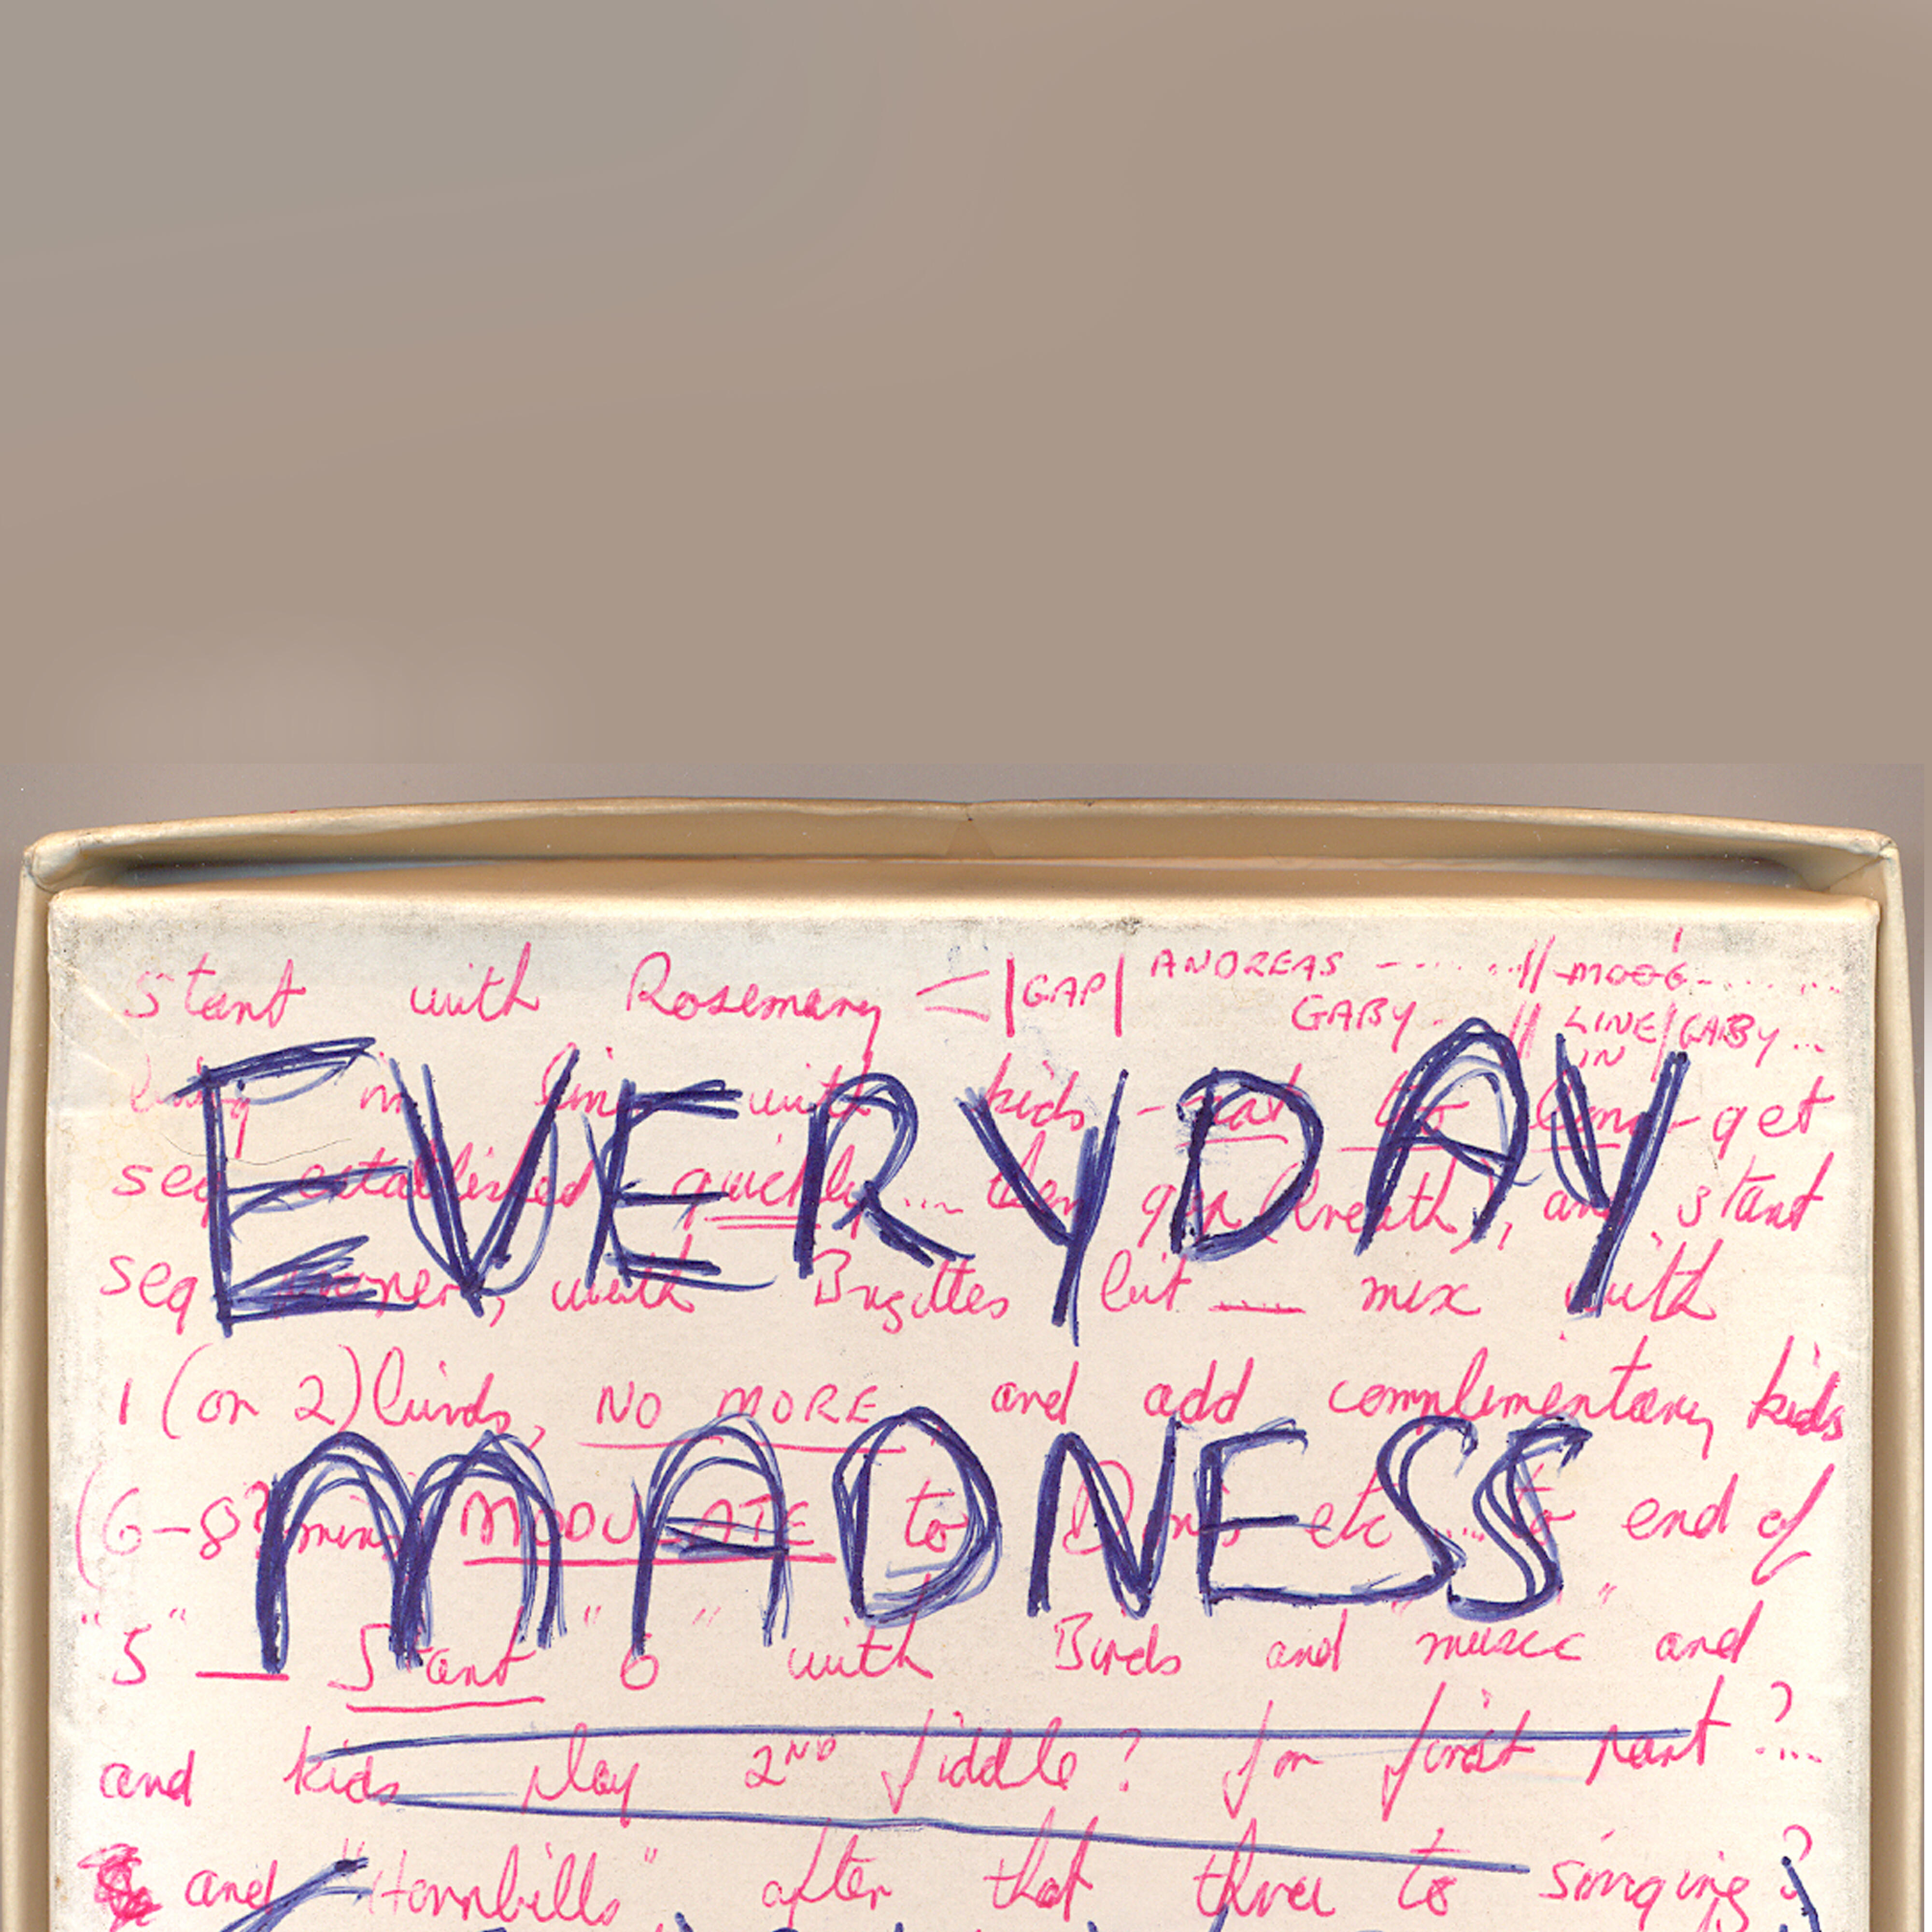 Start with Rosemary < |GAP| ANDREAS - ..... .. // MOOG - .... ..
GABY - // LINE IN / GABY ...
in line with kids - not too long - get
EVERYDAY
seq established quickly ... then gap (breath), and start
seq proper, with Brigittes but ___ mix with
1 (or 2) birds, NO MORE and add complimentary kids
MADNESS
(6-8? mins) MODULATE to etc .... to end of
"5" — Start "6" with Birds and "music" and
and kids play 2ND fiddle? for first part?...
and "Hornbills" after that thru to singing?